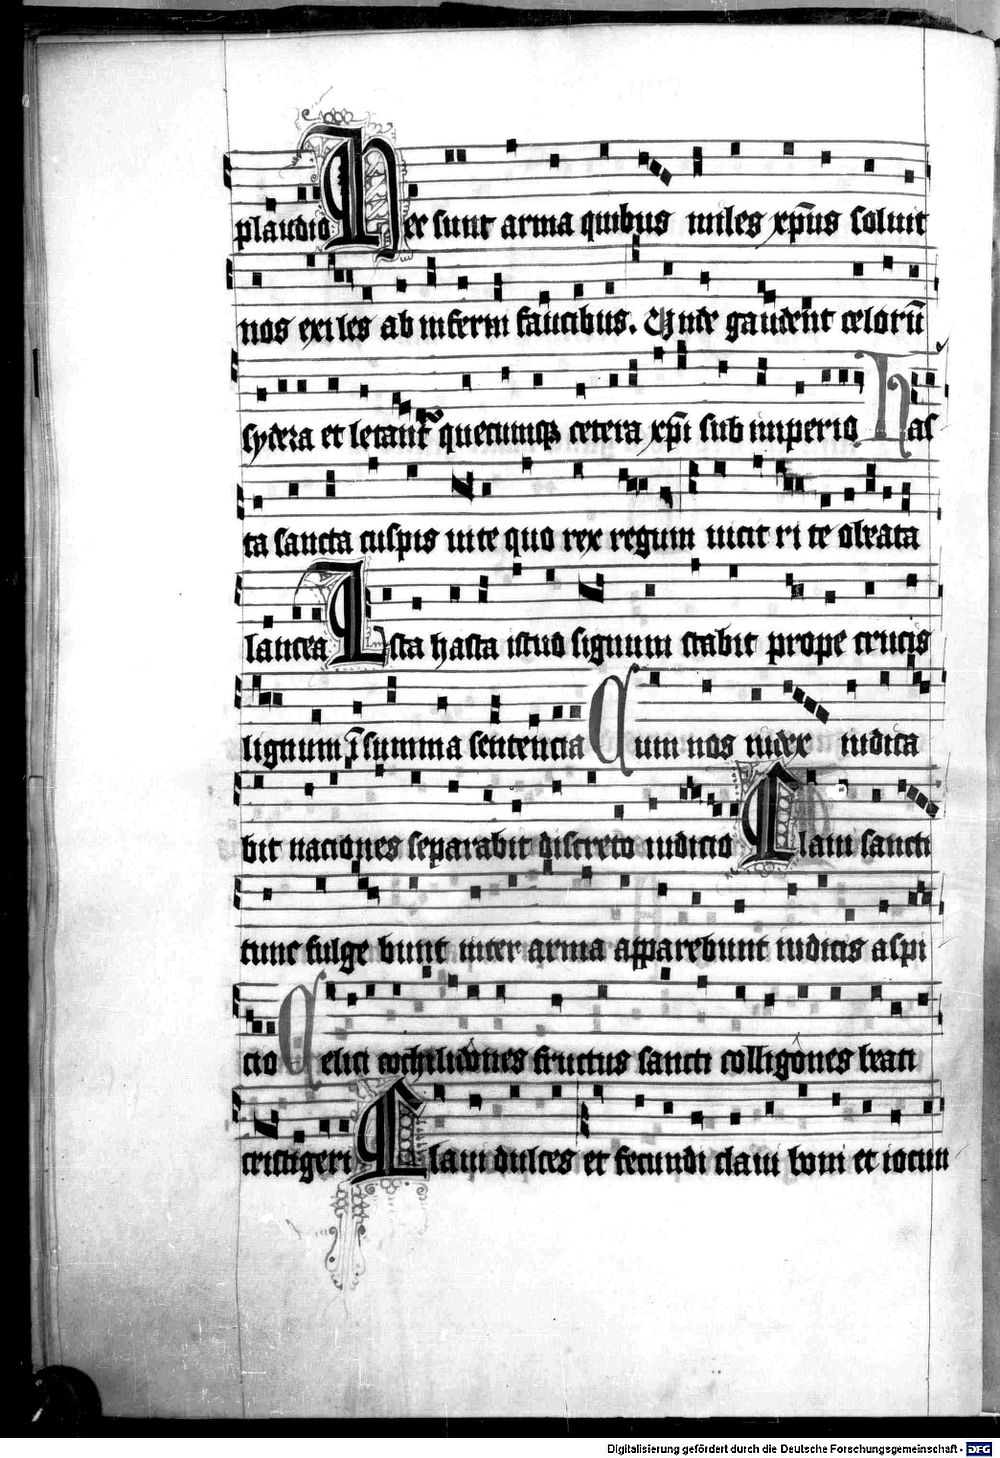 plaudio Hec sunt arma quibus miles xp̄us soluit
nos exiles ab inferni faucibus. Unde gaudent celorū
sydera et letant᷑ quecumq; cetera xp̄i sub imperio Has
ta sancta cuspis uite quo rex regum uicit ri te oleata
lancea Ista hasta istud signum stabit prope crucis
lignum ī summa sentencia Cum nos iudex iudica
bit naciones separabit discreto iudicio Claui sancti
tunc fulge bunt inter arma apparebunt iudicis aspi
cio Celici fructus sancti colligones beati
cristigeri Claui dulces et fecundi claui boni et iocun
Digitalisierung gefördert durch die Deutsche Forschungsgemeinschaft - DFG